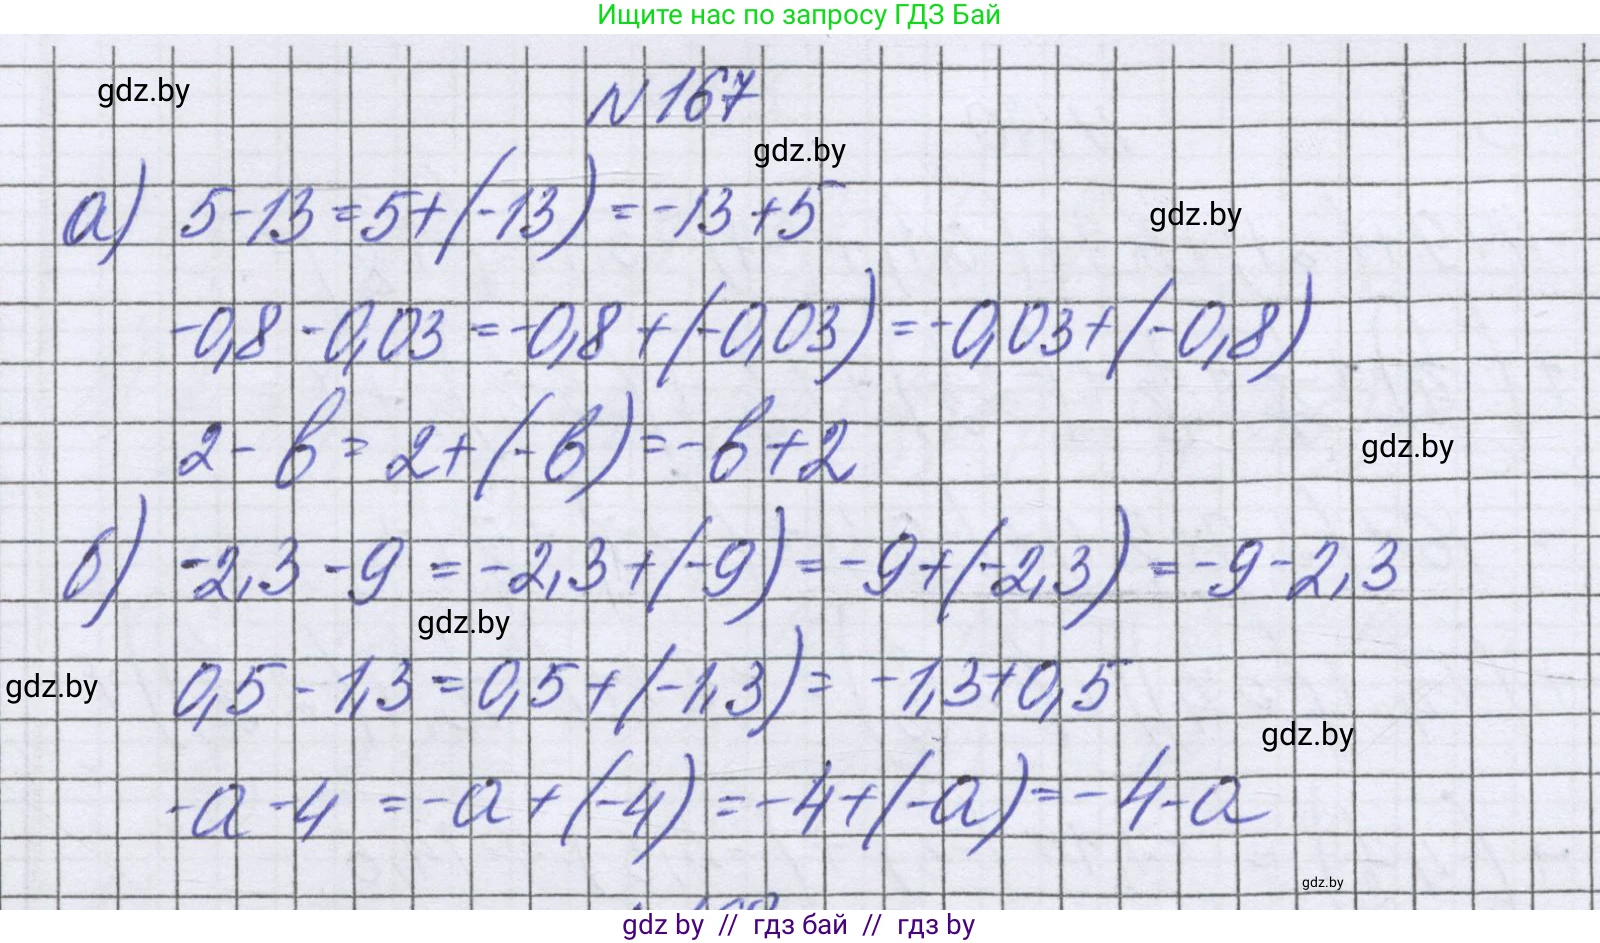 Ищите нас по запросу ГДЗ Бай
gdz.by
N 167
gdz.by
а) 5-13=5+(-13)=-13+5
gdz.by
-0,8-0,03=-0,8+(-0,03)=-0,03+(-0,8)
2-в=2+(-в)=-в+2
gdz.by
б) -2,3-9=-2,3+(-9)=-9+(-2,3)=-9-2,3
gdz.by
0,5-1,3=0,5+(-1,3)=-1,3+0,5
gdz.by
gdz.by
-а-4=-а+(-4)=-4+(-а)=-4-а
gdz.by
gdz by // гдз бай // гдз by